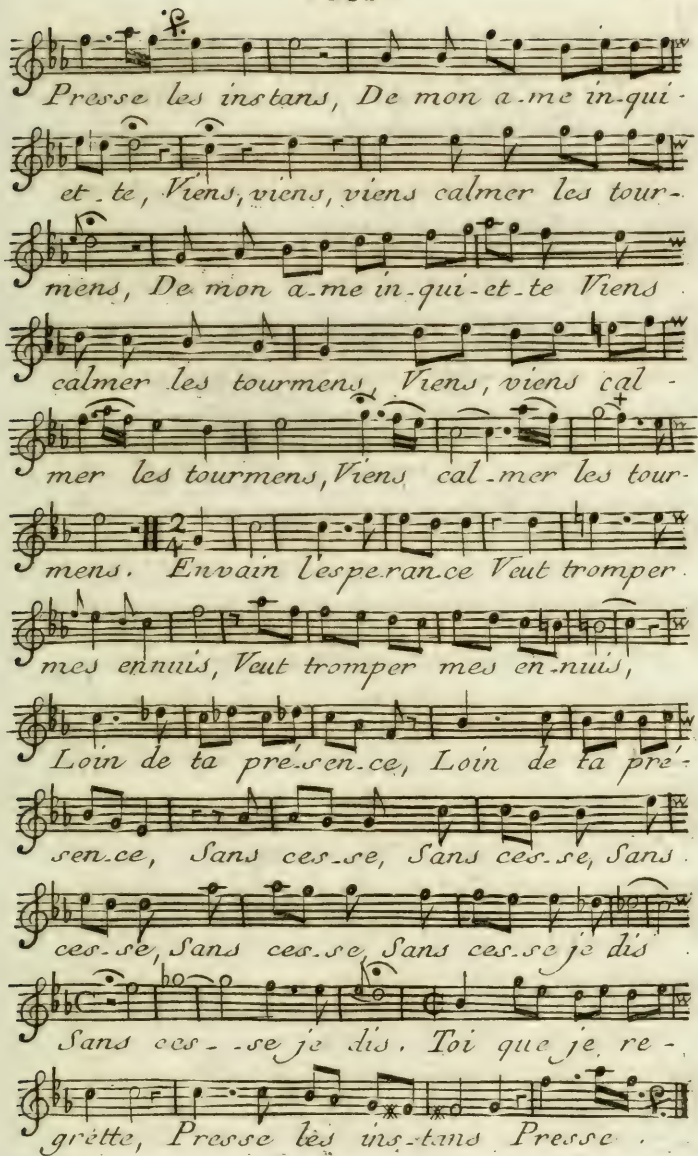 Presse les instans, De mon a-me in-qui-
et-te, Viens, viens, viens calmer les tour-
mens, De mon a-me in-qui-et-te Viens
calmer les tourmens, Viens, viens cal-
mer les tourmens, Viens cal-mer les tour-
2
4
mens. Envain l'espe-ran-ce Veut tromper
mes ennuis, Veut tromper mes en-nuis,
Loin de ta pré-sen-ce, Loin de ta pré-
sen-ce, Sans ces-se, Sans ces-se, Sans
ces-se, Sans ces-se, Sans ces-se je dis
Sans ces--se je dis. Toi que je re-
grette, Presse les ins-tans Presse.